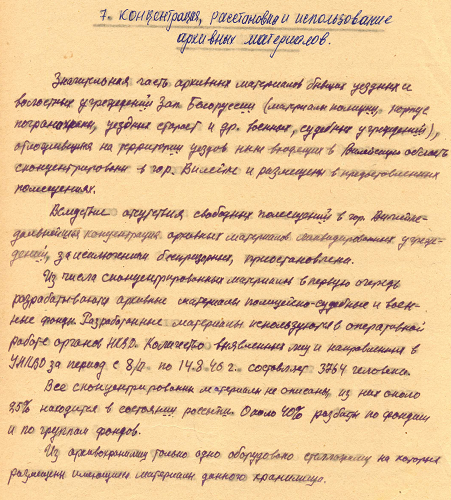 7. Концентрация, расстановка и использование
архивных материалов.
Значительная часть архивных материалов бывших уездных и
волостных учреждений Зап. Белоруссии (материалы полиции, корпус
погранохраны, уездных старост и др. военных, судебных учреждений),
находившихся на территории уездов ныне входящих в Вилейскую область
сконцентрированы в гор. Вилейке и размещены в предоставленных
помещениях.
Вследствие отсутствия свободных помещений в гор. Вилейке-
дальнейшая концентрация архивных материалов ликвидированных учреж-
дений, за исключением беспризорных, приостановлена.
Из числа сконцентрированных материалов в первую очередь
разрабатываются архивные материалы полицейско-судебные и воен-
ные фонды. Разработанные материалы используются в оперативной
работе органов НКВД. Количество выявленных лиц и направленных в
УНКВД за период с по 14. г. составляет 3764 человека.
Все сконцентрированы материалы не описаны, из них около
25% находится в состоянии россыпи. Около 40% разбиты по фондам
и по группам фондов.
Из архивохранилищ только одно оборудовано стеллажами на которых
размещены имеющиеся материалы данного хранилища.